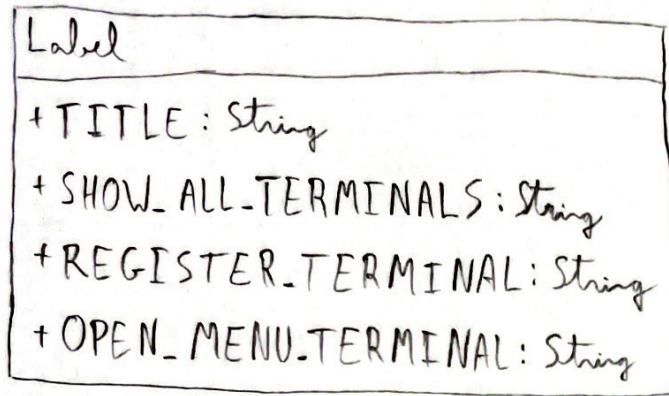 Label
+ TITLE : String
+ SHOW_ALL_TERMINALS : String
+ REGISTER_TERMINAL : String
+ OPEN_MENU_TERMINAL : String